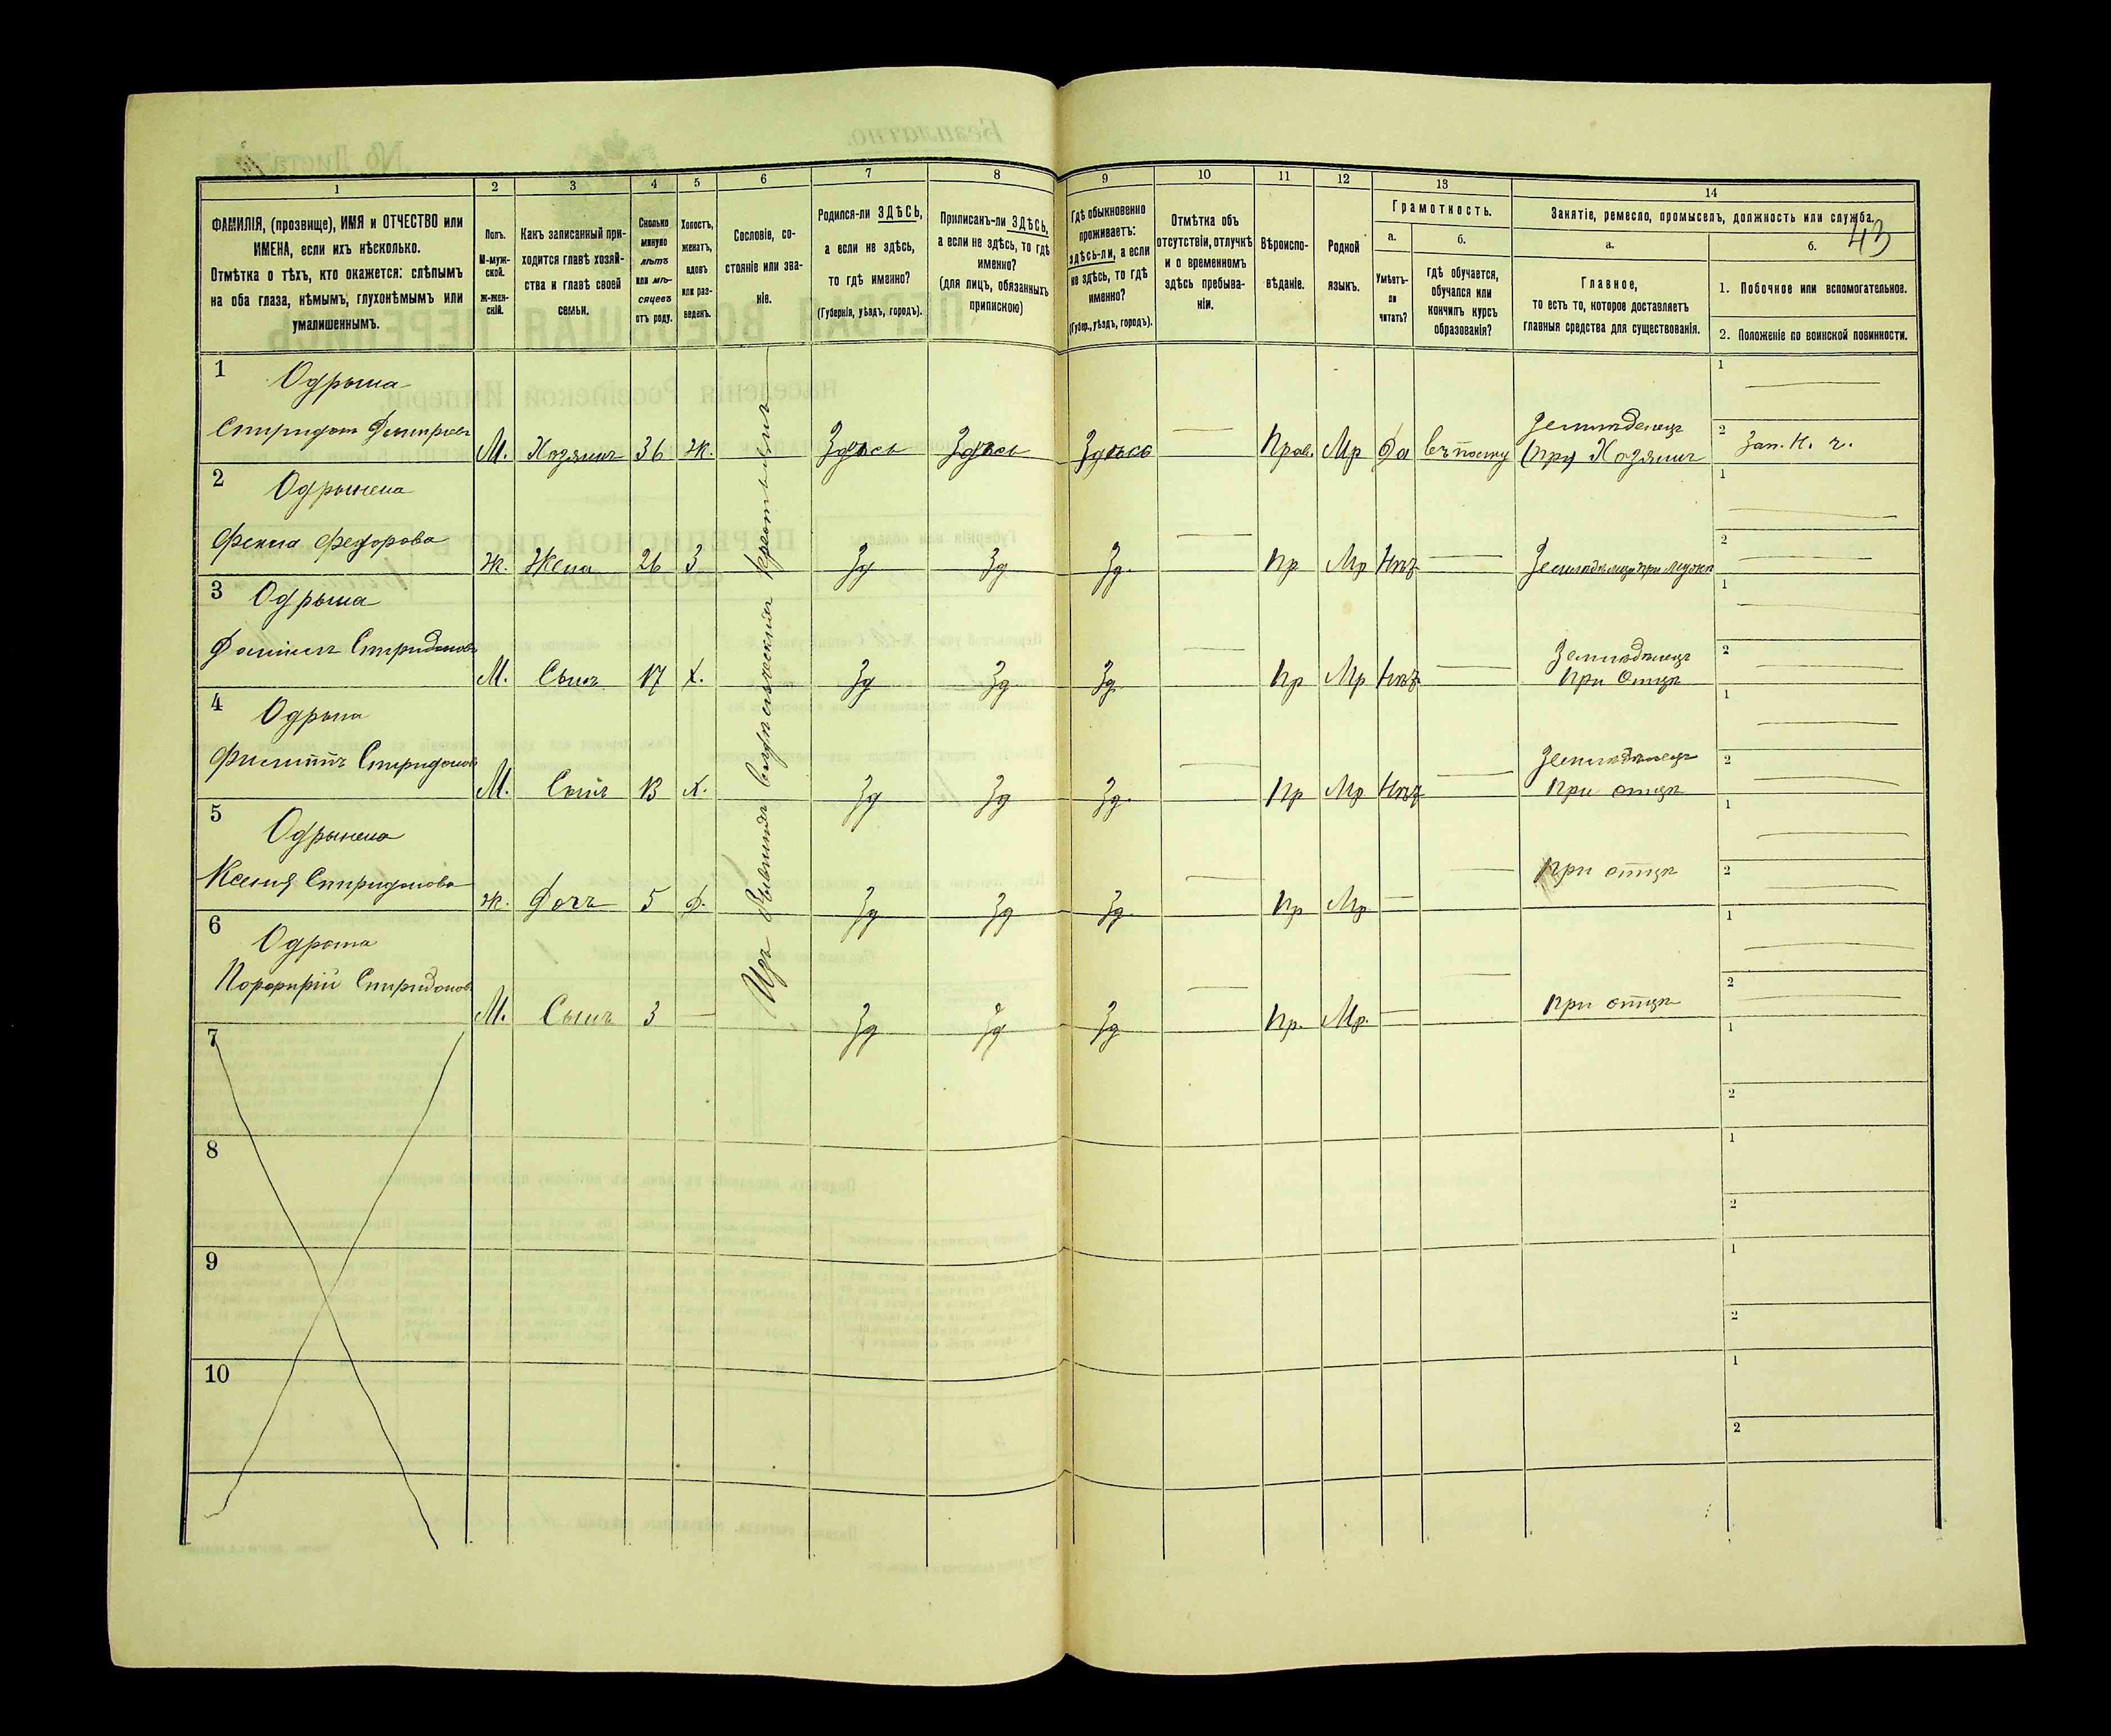 43
1 2 3 4 5 6 7 8 9 10 11 12 13 14
ФАМИЛІЯ, (прозвище), ИМЯ и ОТЧЕСТВО или
ИМЕНА, если ихъ нѣсколько.
Отмѣтка о тѣхъ, кто окажется: слѣпымъ
на оба глаза, нѣмымъ, глухонѣмымъ или
умалишеннымъ.
Полъ.
М-муж-
ской.
Ж-жен-
скій.
Какъ записанный при-
ходится главѣ хозяй-
ства и главѣ своей
семьи.
Сколько
минуло
лѣтъ
или мѣ-
сяцевъ
отъ роду.
Холостъ,
женатъ,
вдовъ
или раз-
веденъ.
Сословіе, со-
стояніе или зва-
ніе.
Родился-ли ЗДѢСЬ,
а если не здѣсь,
то гдѣ именно?
(Губернія, уѣздъ, городъ).
Приписанъ-ли ЗДѢСЬ,
а если не здѣсь, то гдѣ
именно?
(для лицъ, обязанныхъ
припискою)
Гдѣ обыкновенно
проживаетъ:
здѣсь-ли, а если
не здѣсь, то гдѣ
именно?
(Губер., уѣздъ, городъ).
Отмѣтка объ
отсутствіи, отлучкѣ
и о временномъ
здѣсь пребыва-
ніи.
Вѣроиспо-
вѣданіе.
Родной
языкъ.
Грамотность.
а.
Умѣетъ-
ли
читать?
б.
гдѣ обучается,
обучался или
кончилъ курсъ
образованія?
Занятіе, ремесло, промыселъ, должность или служба.
а.
Главное,
то есть то, которое доставляетъ
главныя средства для существованія.
б.
1. Побочное или вспомогательное.
2. Положеніе по воинской повинности.
1 Одрына
Спиридонъ Дмитріевъ М. Хозяинъ 36 Ж. Здѣсь Здѣсь Здѣсь Прав. Мр Да
Земледѣлецъ
Хозяинъ
Зап. Н. ч.
2 Одрынена
Федорова Ж. Жена 26 З Зд Зд Зд. Пр Мр Нѣтъ при мужѣ
3 Одрына
Спиридоновъ М. Сынъ 17 Х. Зд Зд Зд. Пр Мр Нѣтъ
Земледѣлецъ
При Отцѣ
4 Одрына
Филиппъ Спиридоновъ М. Сынъ 13 Х. Зд Зд Зд. Пр Мр Нѣтъ
Земледѣлецъ
При отцѣ
5 Одрынена
Ксенія Спиридонова Ж. Дочь 5 Д. Зд Зд Зд. Пр Мр
При отцѣ
6 Одрына
Порфирій Спиридоновъ М. Сынъ 3 Зд Зд Зд Пр. Мр.
При отцѣ
Изъ бывшихъ крестьянъ
7
8
9
10